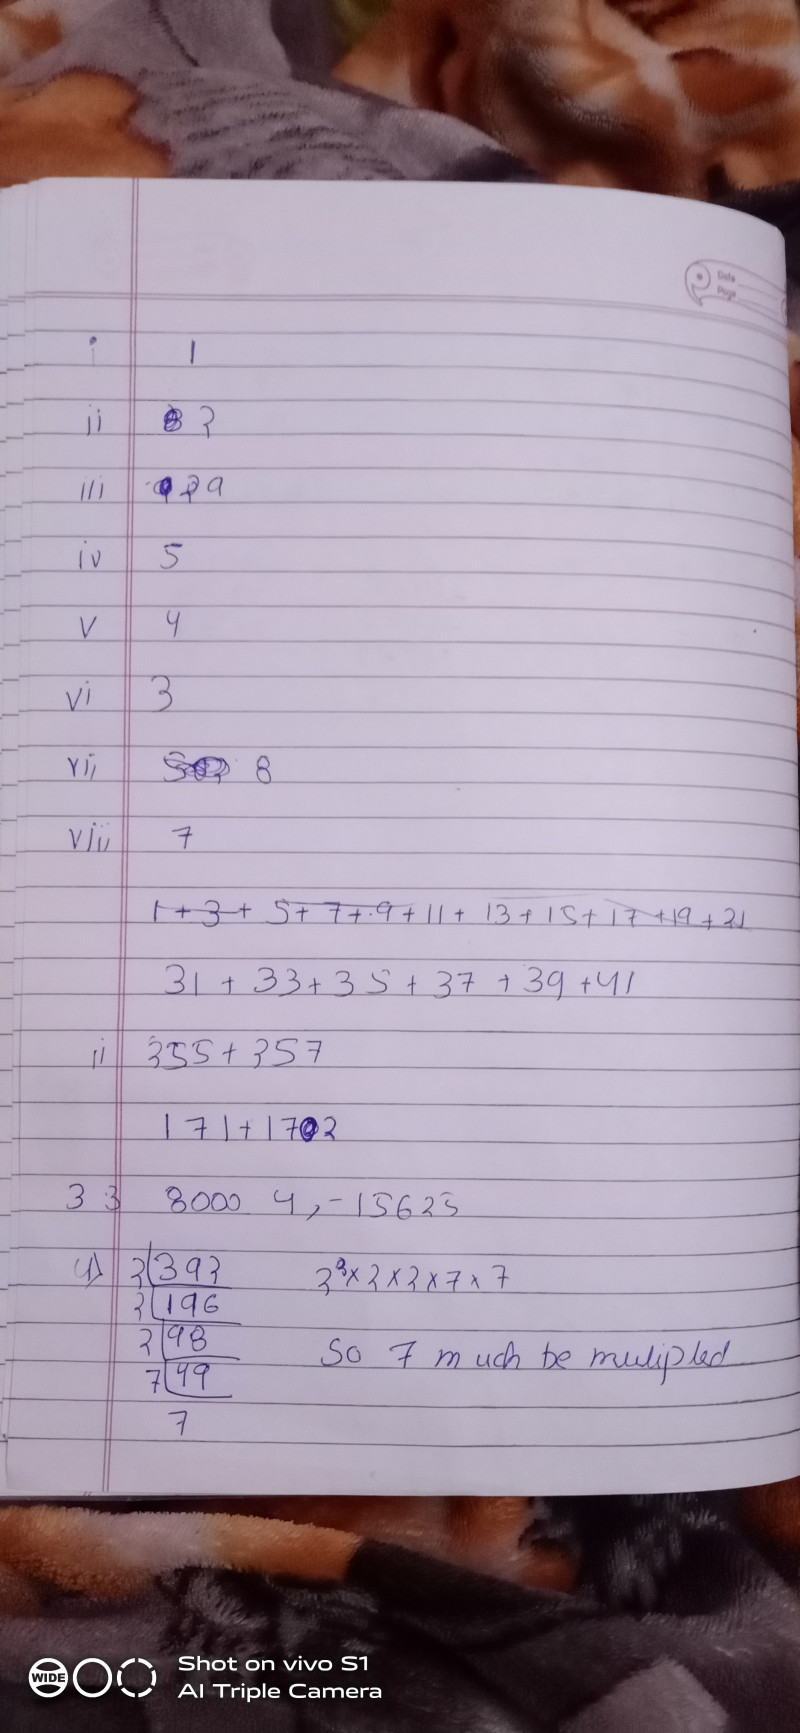 Date
Page
i 1
ii 2
iii 9
iv 5
v 4
vi 3
vii 8
viii 7
1+3+ 5+ 7+9+11+ 13+15+17+19+21
31 + 33+35+37 +39+41
ii 355+357
171+172
3 3 8000 4,-15625
4) 2 392 2³×2×2×7×7
2 196
2 98 So 7 much be mulipled
7 49
7
WIDE
Shot on vivo S1
AI Triple Camera